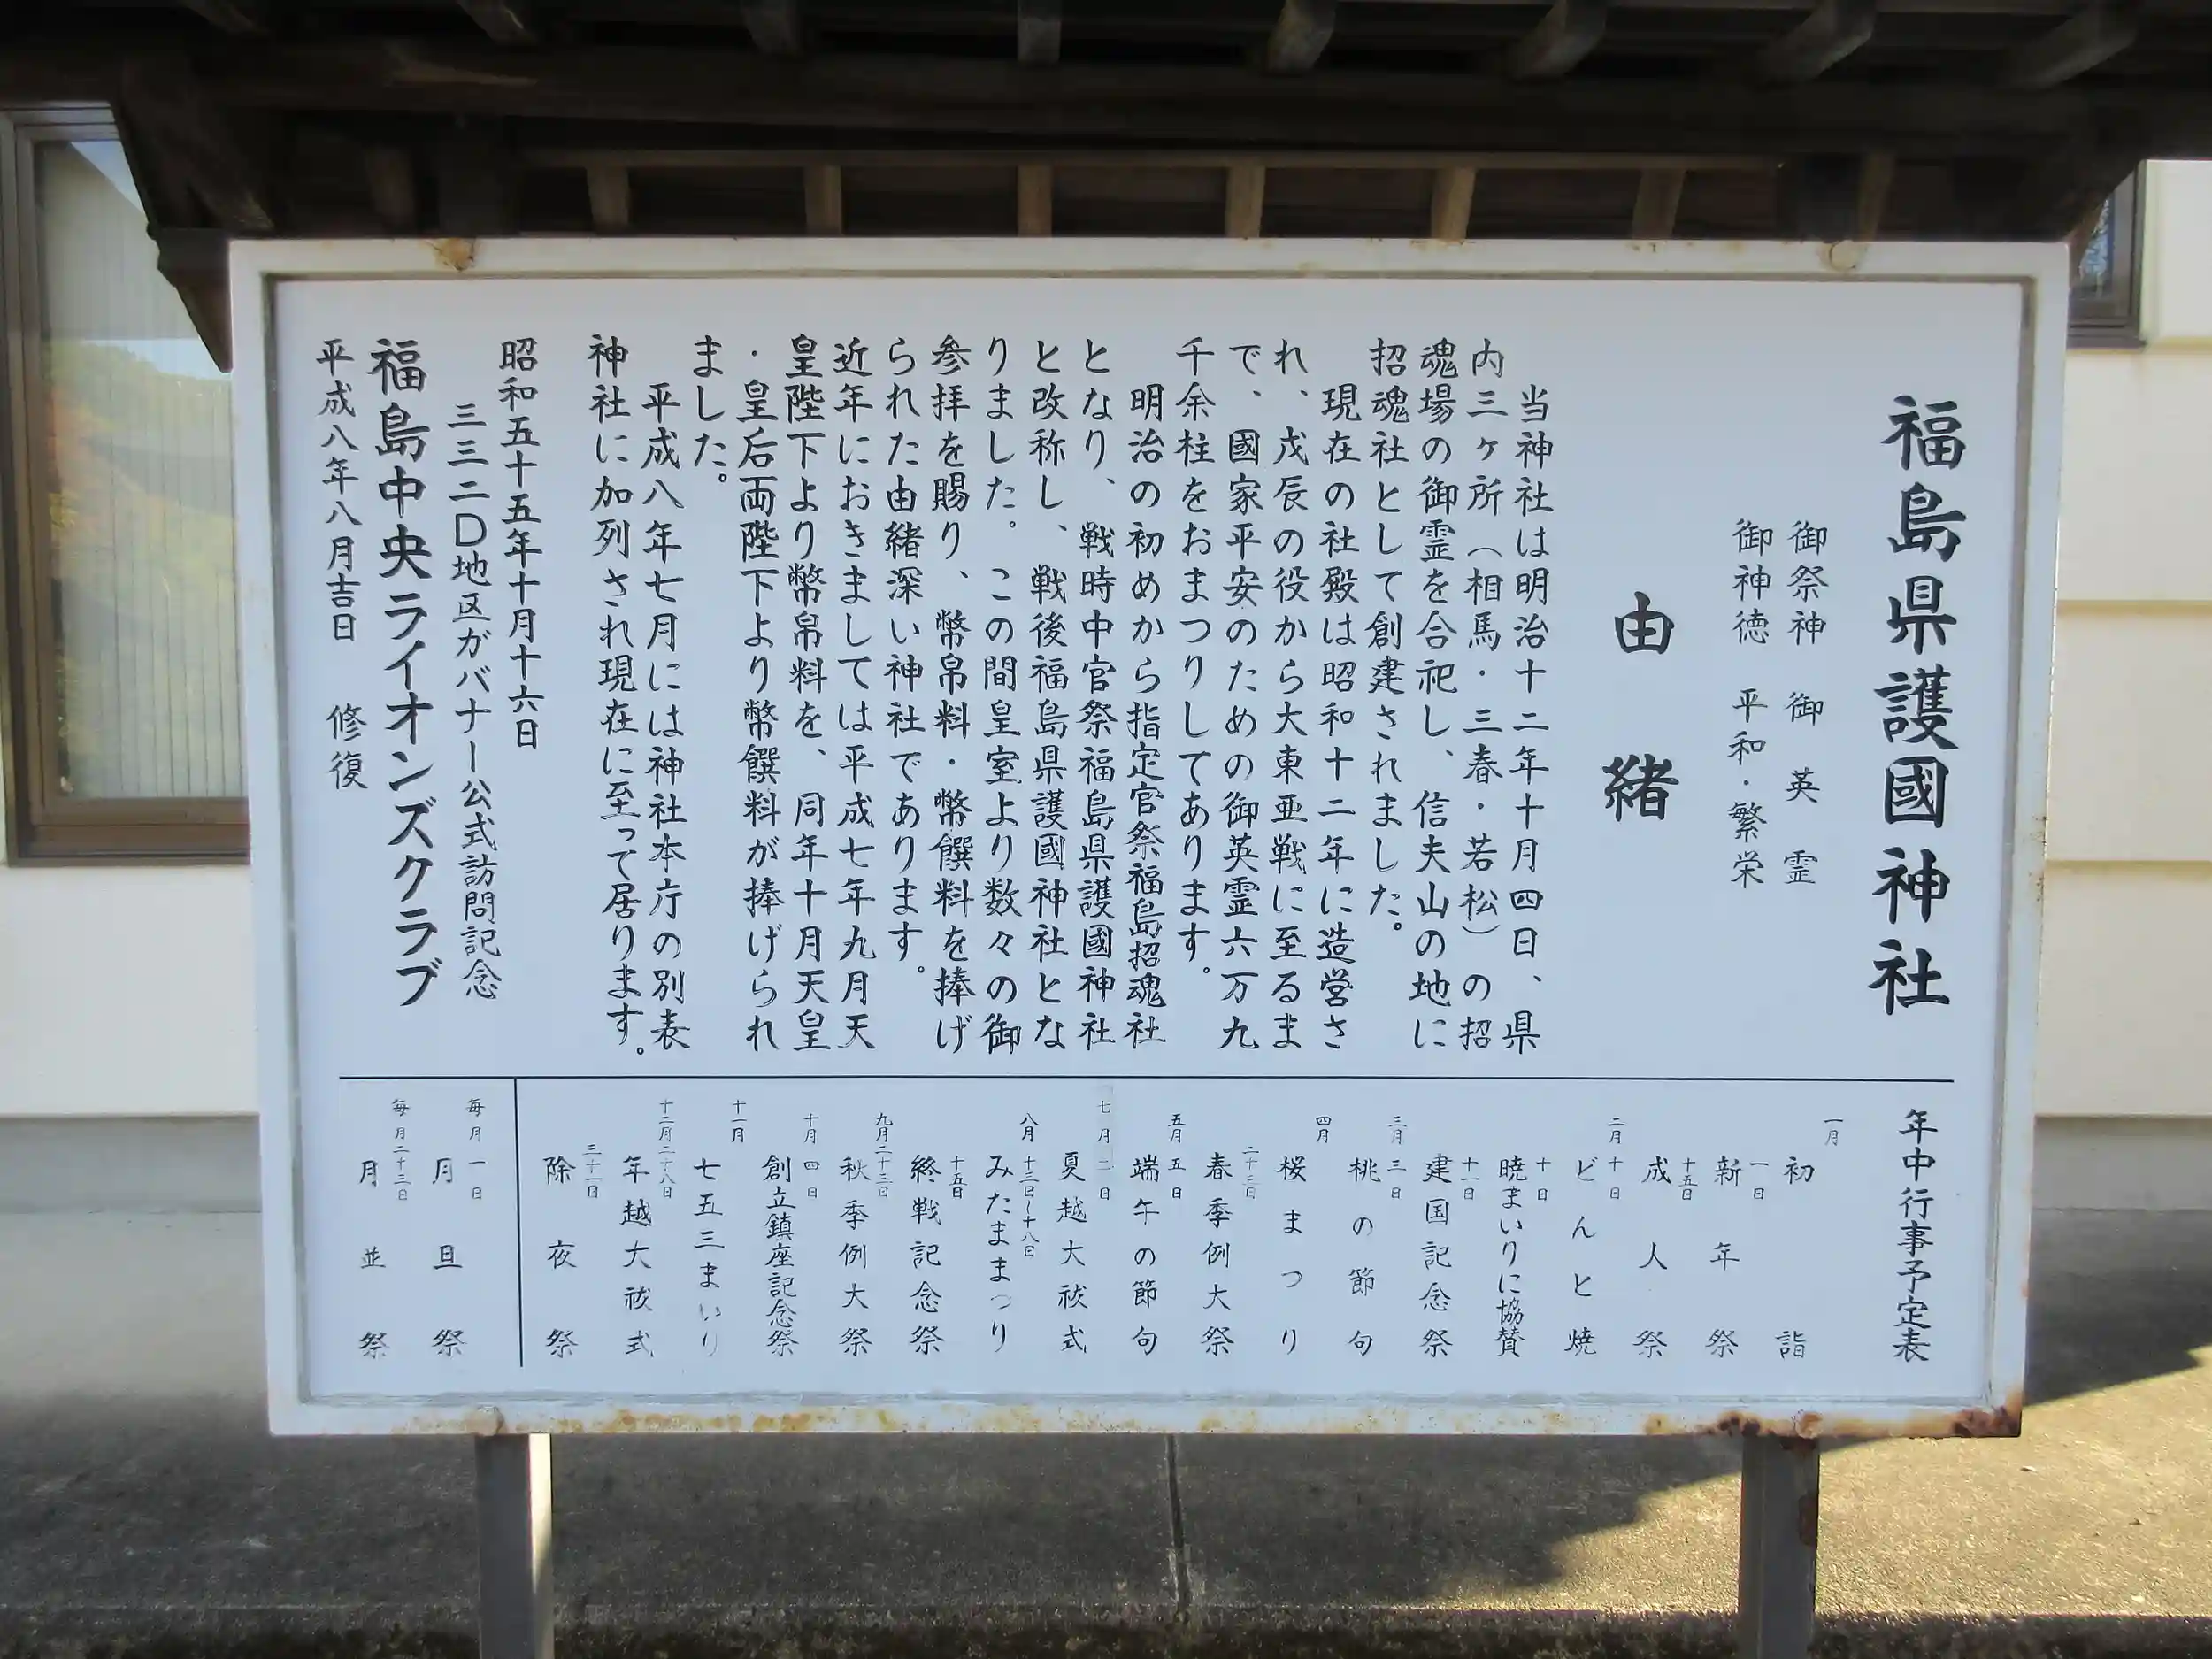 福島県護國神社
御祭神 御英霊
御神徳 平和・繁栄
由緒
当神社は明治十二年十月四日、県
内三ヶ所（相馬・三春・若松）の招
魂場の御霊を合祀し、信夫山の地に
招魂社として創建されました。
現在の社殿は昭和十二年に造営さ
れ、戊辰の役から大東亜戦に至るま
で、國家平安のための御英霊六万九
千余柱をおまつりしてあります。
明治の初めから指定官祭福島招魂社
となり、戦時中官祭福島県護國神社
と改称し、戦後福島県護國神社とな
りました。この間皇室より数々の御
参拝を賜り、幣帛料・幣饌料を捧げ
られた由緒深い神社であります。
近年におきましては平成七年九月天
皇陛下より幣帛料を、同年十月天皇
・皇后両陛下より幣饌料が捧げられ
ました。
平成八年七月には神社本庁の別表
神社に加列され現在に至って居ります。
昭和五十五年十月十六日
三三二D地区ガバナー公式訪問記念
福島中央ライオンズクラブ
平成八年八月吉日 修復
年中行事予定表
一月
初詣
一日
新年祭
十五日
成人祭
二月十日
どんと焼
十日
暁まいりに協賛
十一日
建国記念祭
三月三日
桃の節句
四月
桜まつり
二十三日
春季例大祭
五月五日
端午の節句
七月二日
夏越大祓式
八月十三日〜十八日
みたままつり
十五日
終戦記念祭
九月二十三日
秋季例大祭
十月四日
創立鎮座記念祭
十一月
七五三まいり
十二月二十八日
年越大祓式
三十一日
除夜祭
毎月一日
月旦祭
毎月二十三日
月並祭